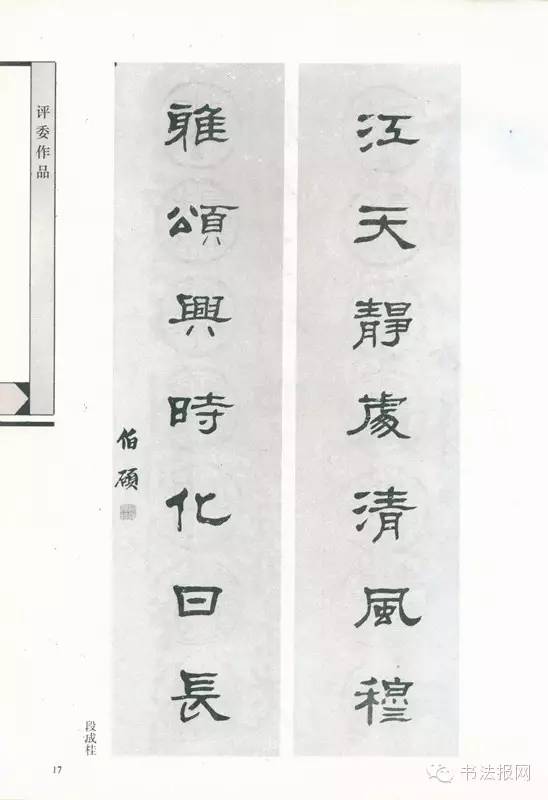 评委作品
江天靜處清風穆
雅頌興時化日長
伯碩
段成桂
17
书法报网